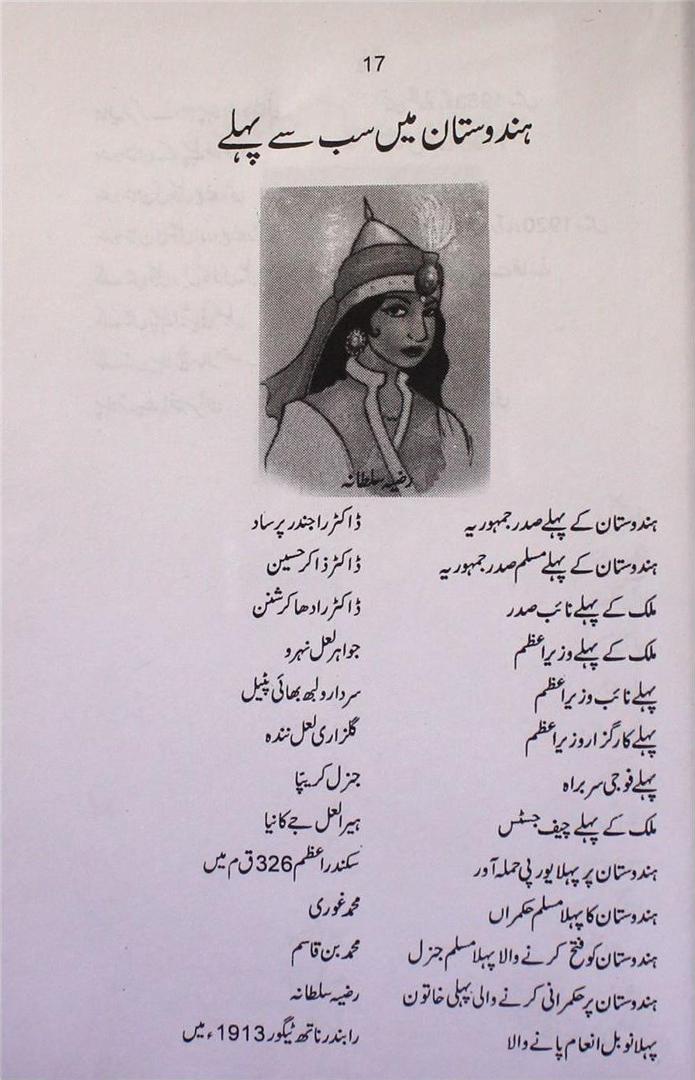 17
ہندوستان میں سب سے پہلے
رضیہ سلطانہ
ہندوستان کے پہلے صدر جمہوریہ ڈاکٹر راجندر پرساد
ہندوستان کے پہلے مسلم صدر جمہوریہ ڈاکٹر ذاکر حسین
ملک کے پہلے نائب صدر ڈاکٹر رادھا کرشنن
ملک کے پہلے وزیر اعظم جواہر لعل نہرو
پہلے نائب وزیر اعظم سردار ولبھ بھائی پٹیل
پہلے کارگزار وزیر اعظم گلزاری لعل نندہ
پہلے فوجی سربراہ جنرل کریپا
ملک کے پہلے چیف جسٹس ہیرا لعل جے کانیا
ہندوستان پر پہلا یورپی حملہ آور سکندر اعظم 326 ق م میں
ہندوستان کا پہلا مسلم حکمراں محمد غوری
ہندوستان کو فتح کرنے والا پہلا مسلم جنرل محمد بن قاسم
ہندوستان پر حکمرانی کرنے والی پہلی خاتون رضیہ سلطانہ
پہلا نوبل انعام پانے والا رابندر ناتھ ٹیگور 1913ء میں